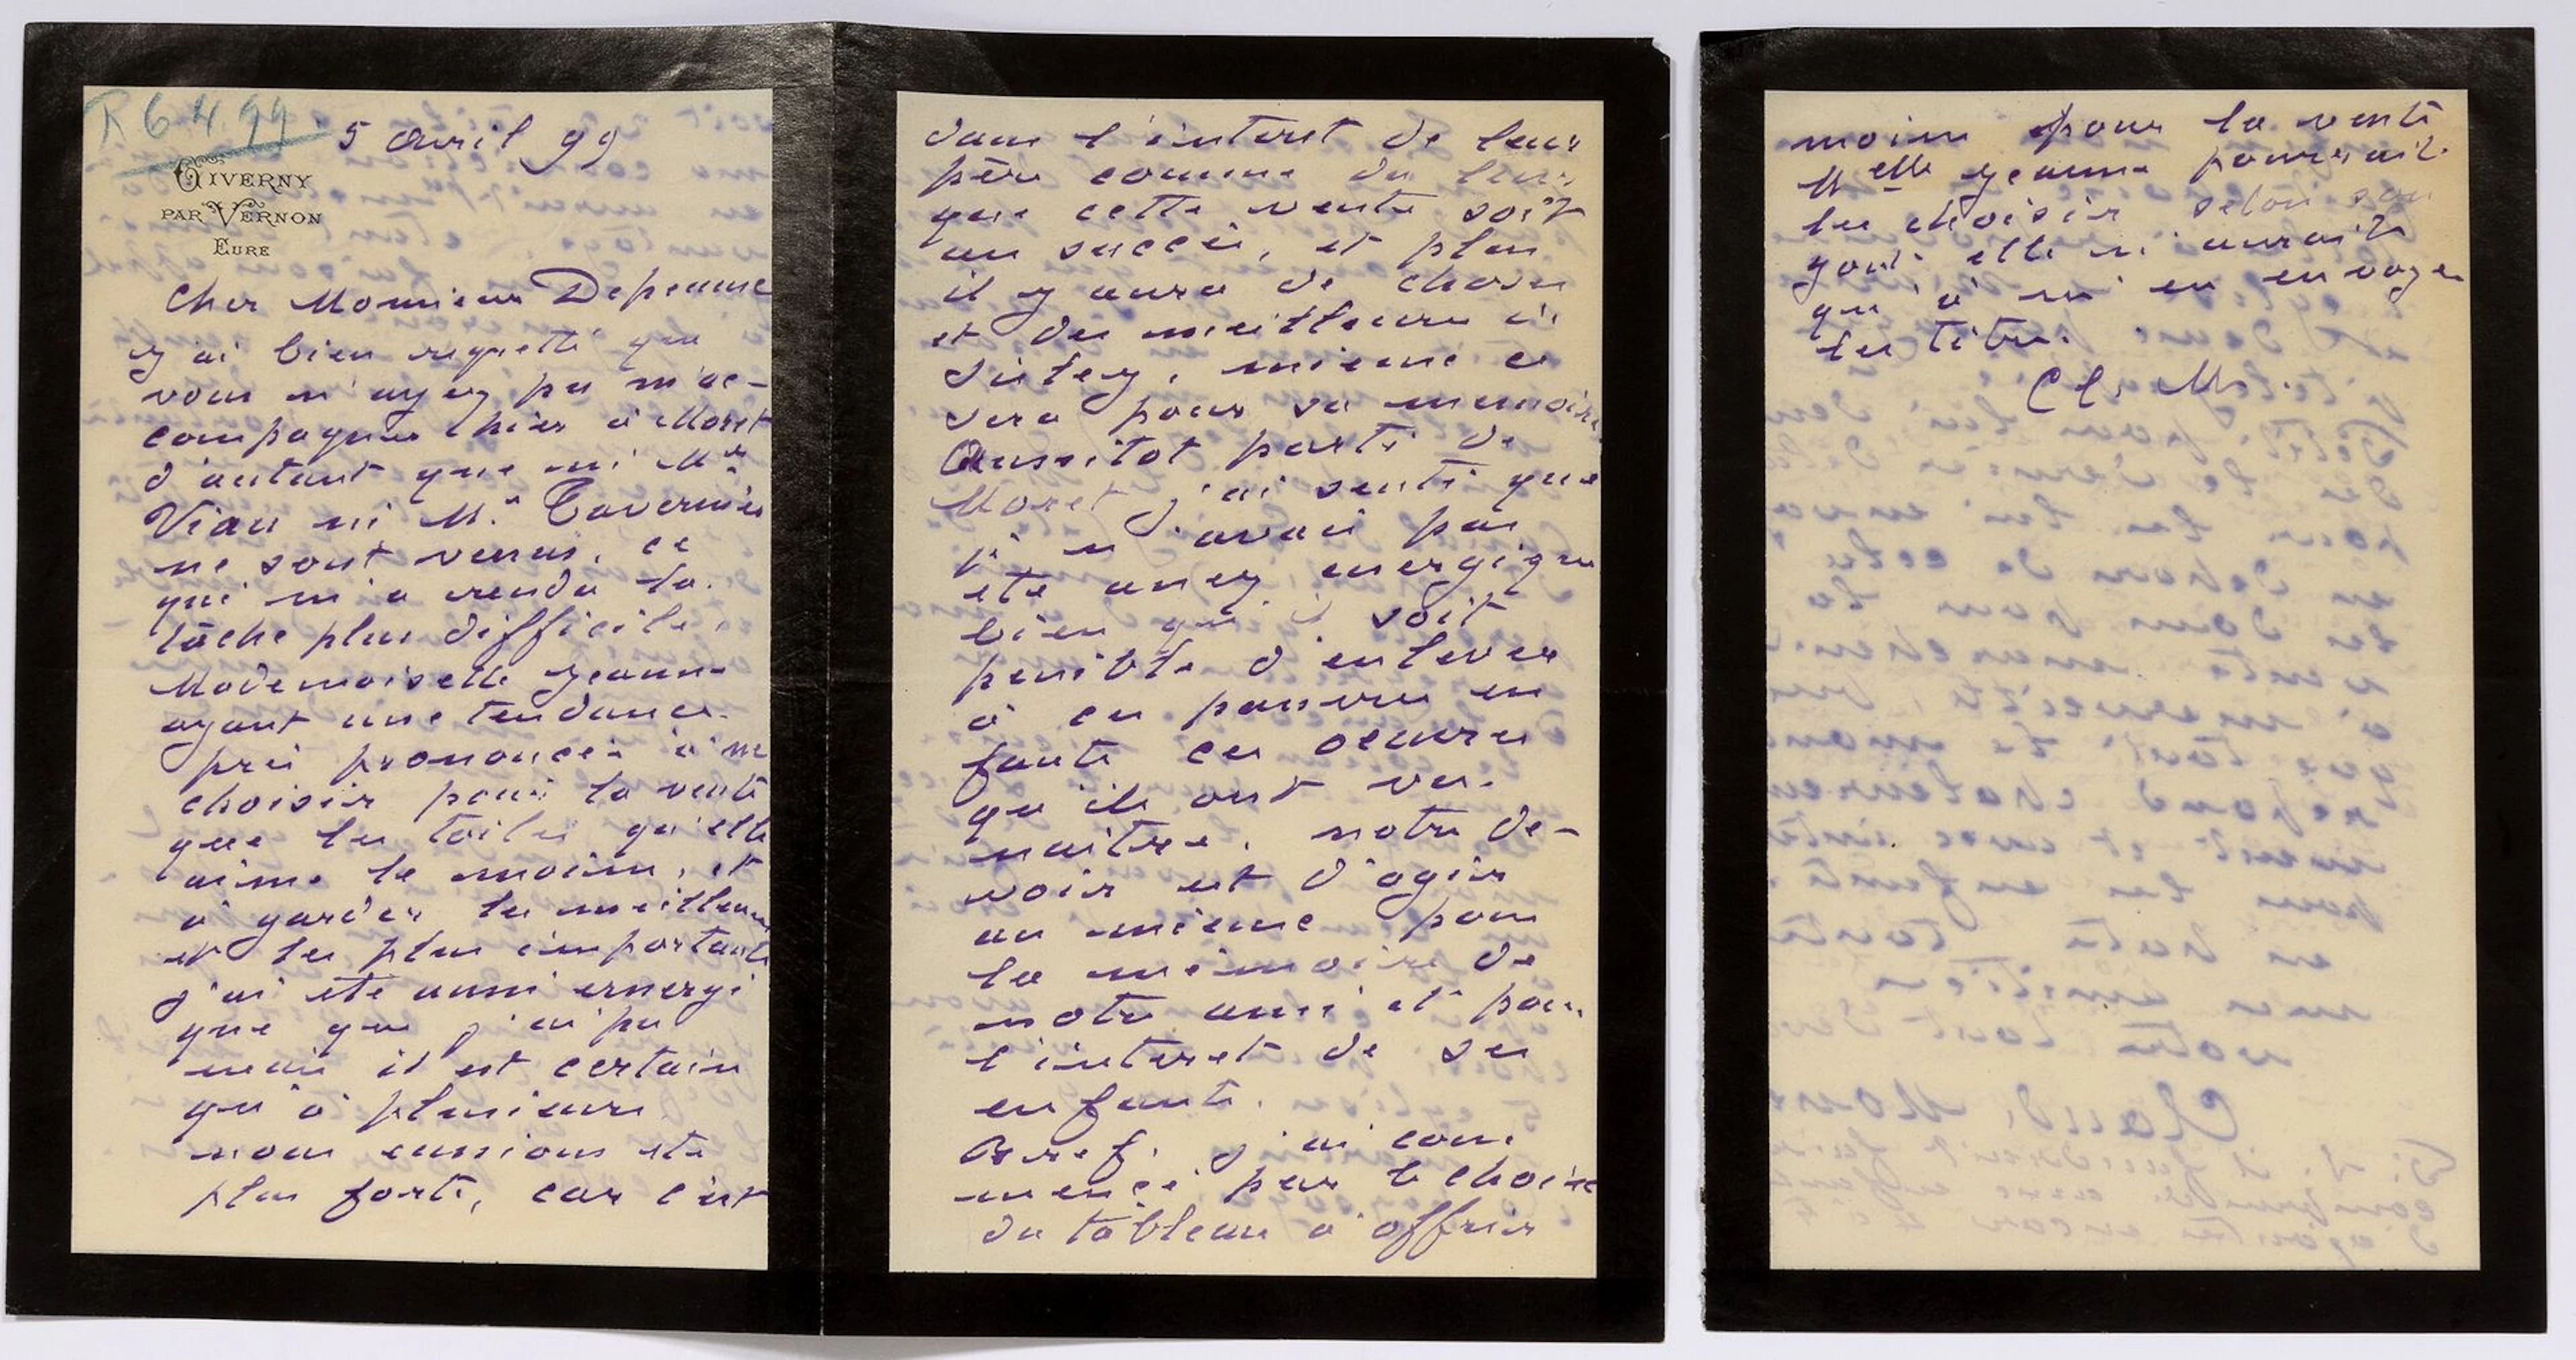 R 6.4.99
5 avril 99
GIVERNY
PAR VERNON
EURE
Cher Monsieur Depeaux
j'ai bien regretté que
vous n'ayez pu m'ac-
compagner hier à Moret
d'autant que ni Mr
Viau ni Mr. Tavernier
ne sont venus, ce
qui m'a rendu la
tâche plus difficile,
Mademoiselle Jeanne
ayant une tendance
très prononcée à ne
choisir pour la vente
que les toiles qu'elle
aime le moins, et
à garder les meilleures
et les plus importants
j'ai été aussi energi
que que j'ai pu
mais il est certain
qu'à plusieurs
nous eussions été
plus forts, car c'est
dans l'interet de leur
père comme du leur
que cette vente soit
un succès, et plus
il y aura de choses
et des meilleures de
Sisley, mieux ce
sera pour sa memoire
Aussitot parti de
Moret j'ai senti que
je n'avais pas
été assez energique
bien qu'il soit
penible d'enlever
à ces pauvres en
fants ces oeuvres
qu'ils ont vu
naitre, notre de-
voir est d'agir
au mieux pour
la mémoire de
notre ami et pour
l'interet de ses
enfants.
Bref, j'ai com
mencé par le choix
du tableau à offrir
moins pour la vente
Melle Jeanne pourrait
les choisir selon son
gout elle n'aurait
qu'à m'en envoyer
les titres.
Cl. M.